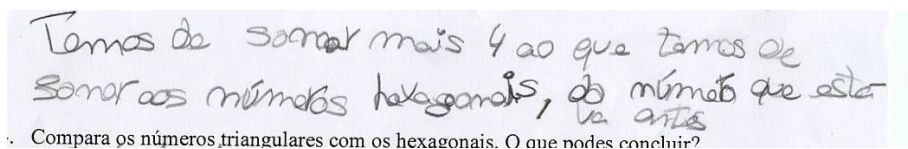 Temos de somar mais 4 ao que temos de
somar aos números hexagonais, do número que esta
va antes
Compara os números triangulares com os hexagonais. O que podes concluir?